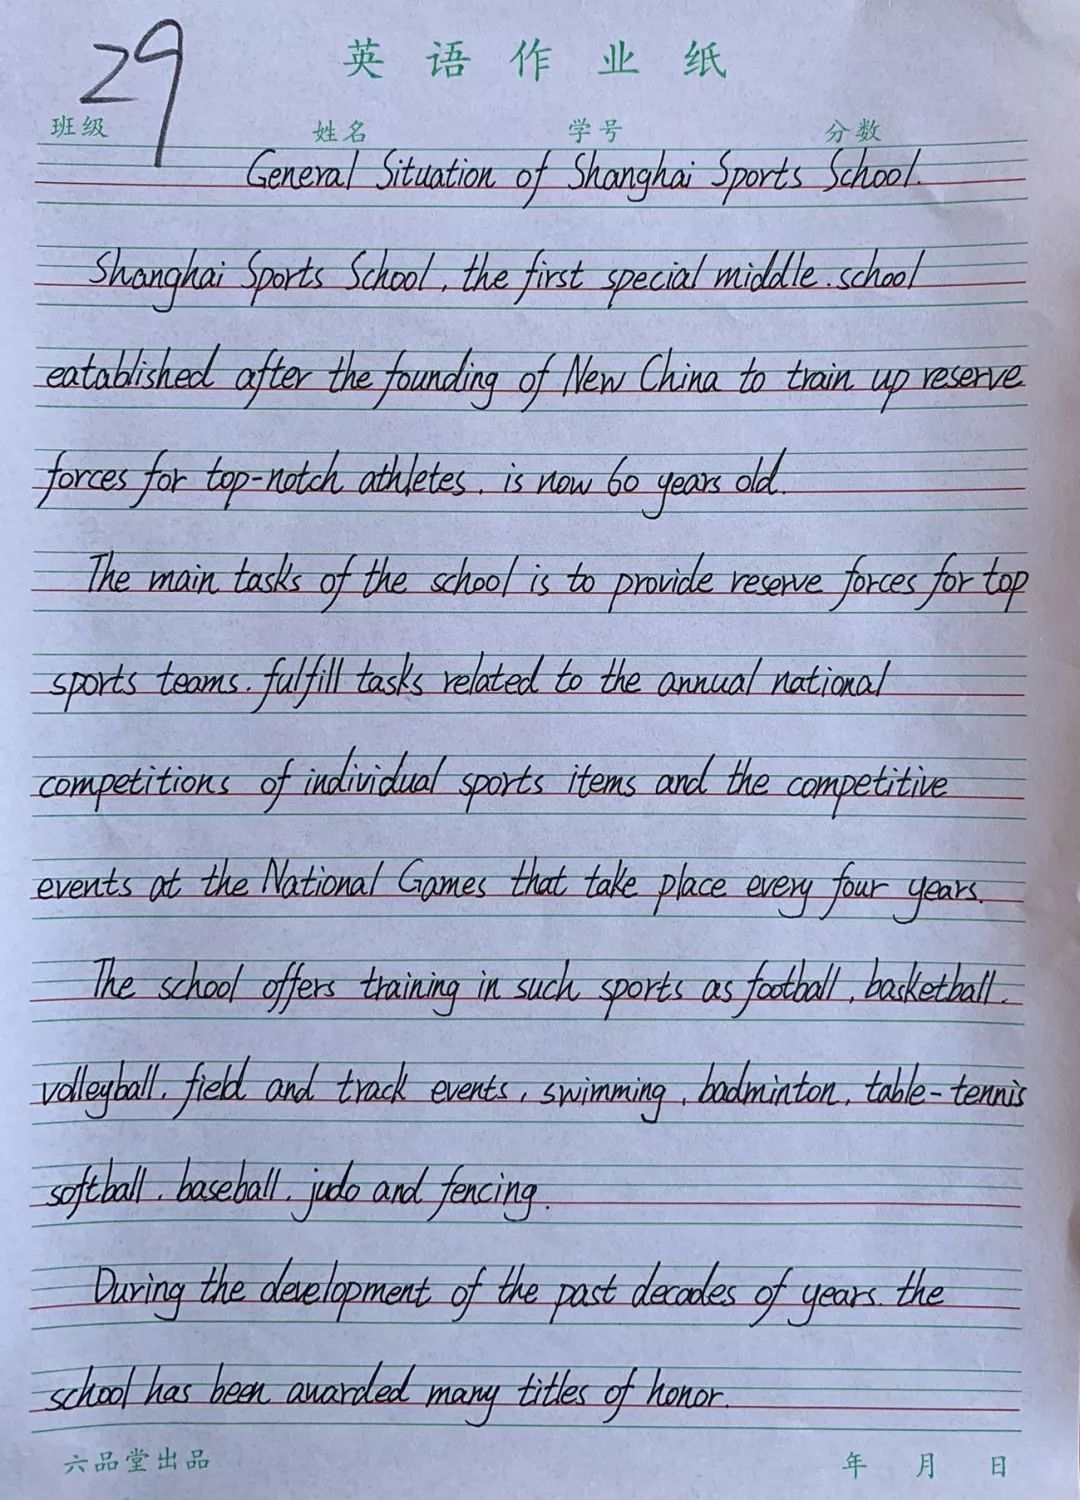 29
英语作业纸
班级 姓名 学号 分数
General Situation of Shanghai Sports School.
Shanghai Sports School, the first special middle.school
eatablished after the founding of New China to train up reserve
forces for top-notch athletes. is now 60 years old.
The main tasks of the school is to provide reserve forces for top
sports teams. fulfill tasks related to the annual national
competitions of individual sports items and the competitive
events at the National Games that take place every four years.
The school offers training in such sports as football, basketball.
volleyball. field and track events, swimming, badminton, table-tennis
softball, baseball, judo and fencing.
During the development of the past decades of years. the
school has been awarded many titles of honor.
六品堂出品 年 月 日